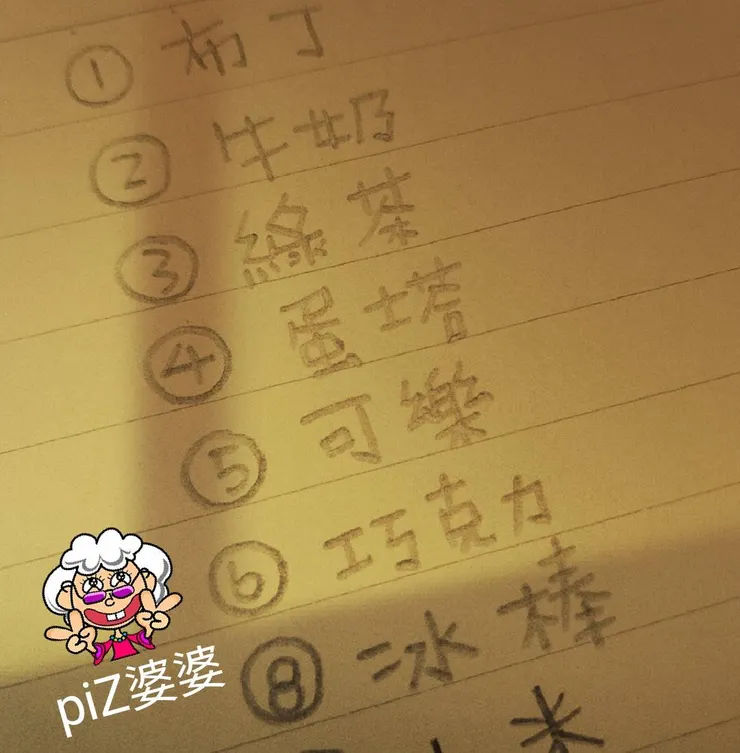 ① 布丁
② 牛奶
③ 綠茶
④ 蛋塔
⑤ 可樂
⑥ 巧克力
⑧ 冰棒
piZ婆婆